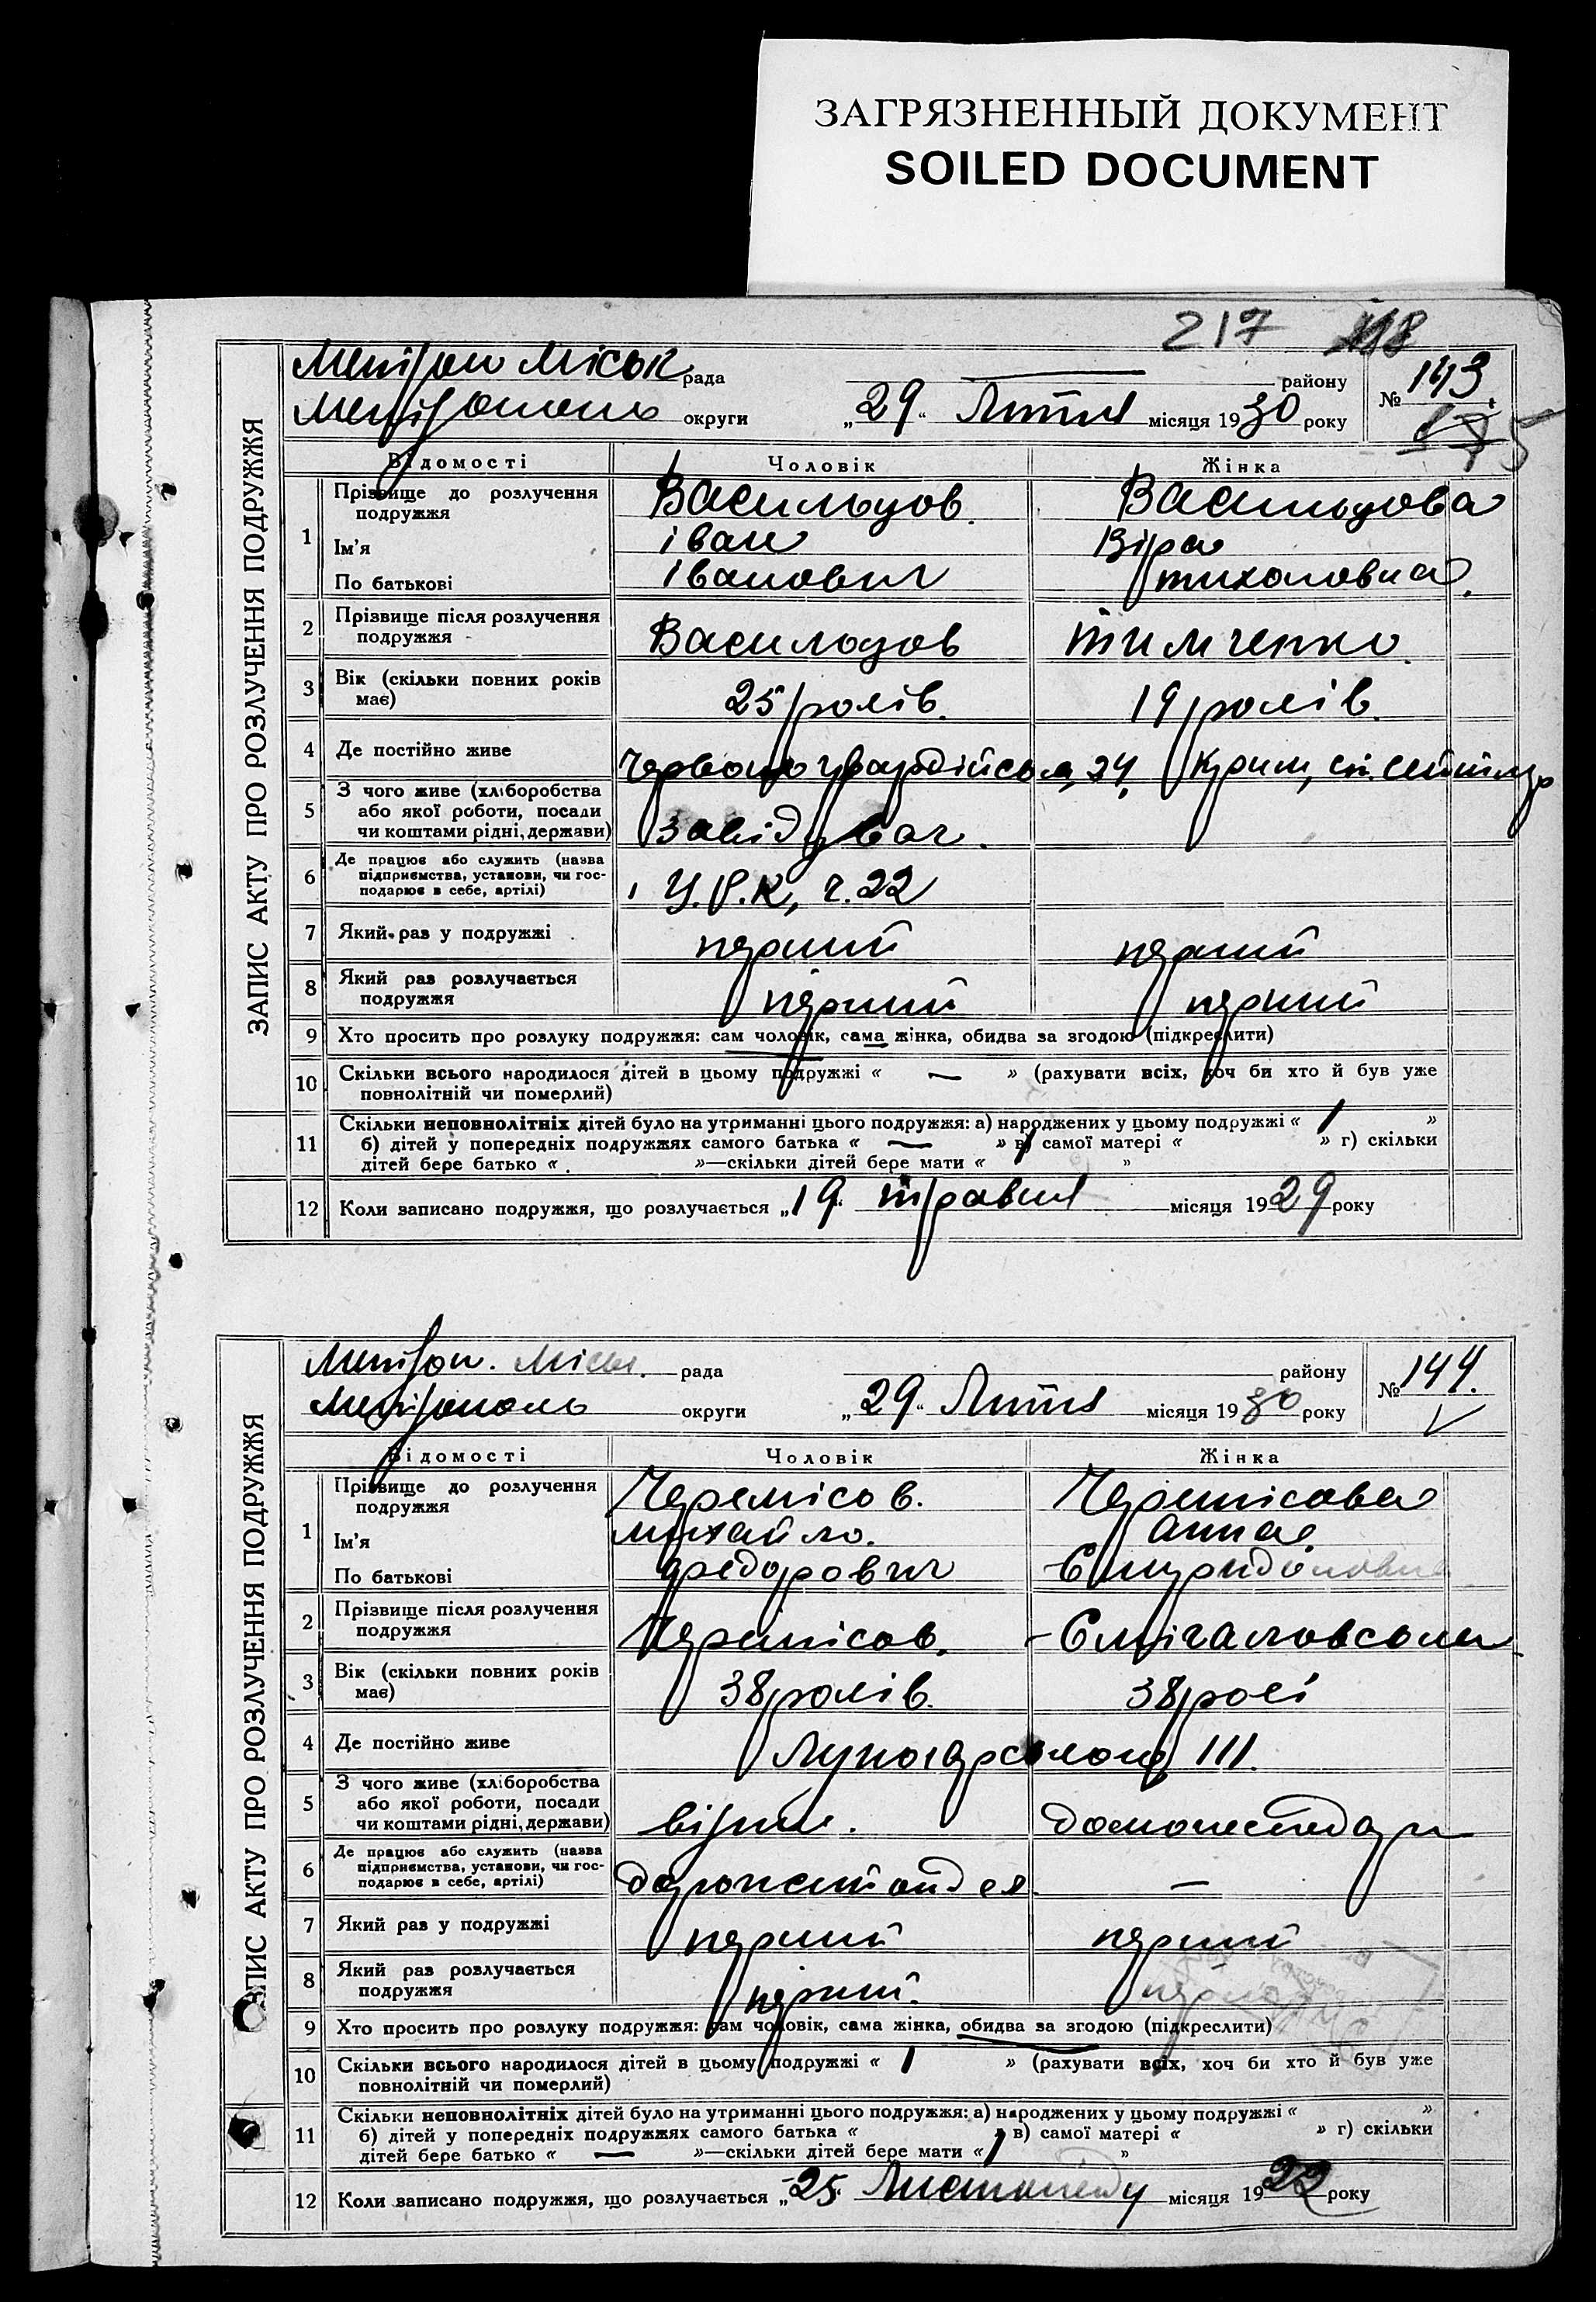 ЗАГРЯЗНЕННЫЙ ДОКУМЕНТ
SOILED DOCUMENT
217 118
ЗАПИС АКТУ ПРО РОЗЛУЧЕННЯ ПОДРУЖЖЯ
Мелітоп Міськ рада району № 143
Мелітополь округи „29“ Лютня місяця 1930 року
Відомості Чоловік Жінка
1 Прізвище до розлучення подружжя Васильцов Васильцова
Ім'я Іван Віра
По батькові Іванович Тихоновна
2 Прізвище після розлучення подружжя Васильцов Тимченко
3 Вік (скільки повних років має) 25 років 19 років
4 Де постійно живе Червоно гвардійська, 24, Крим, ст. Сейтлер
5 З чого живе (хліборобства або якої роботи, посади чи коштами рідні, держави) Завідувач
6 Де працює або служить (назва підприємства, установи, чи господарює в себе, артілі) Ц.Р.К, ч. 22
7 Який раз у подружжі перший перший
8 Який раз розлучається подружжя перший перший
9 Хто просить про розлуку подружжя: сам чоловік, сама жінка, обидва за згодою (підкреслити)
10 Скільки всього народилося дітей в цьому подружжі « — » (рахувати всіх, хоч би хто й був уже
повнолітній чи померлий)
11 Скільки неповнолітніх дітей було на утриманні цього подружжя: а) народжених у цьому подружжі « / »
б) дітей у попередніх подружжях самого батька « — » в) самої матері « » г) скільки
дітей бере батько « »—скільки дітей бере мати « »
12 Коли записано подружжя, що розлучається „19“ травня місяця 1929 року
ЗАПИС АКТУ ПРО РОЗЛУЧЕННЯ ПОДРУЖЖЯ
Мелітоп. Міськ. рада району № 144.
Мелітополь округи „29“ Лютня місяця 1930 року
Відомості Чоловік Жінка
1 Прізвище до розлучення подружжя Черемісов. Черемісова
Ім'я Михайло. Анна
По батькові Федорович Спиридоновна
2 Прізвище після розлучення подружжя Черемісов.
3 Вік (скільки повних років має) 38 років. 38 рокі
4 Де постійно живе 111.
5 З чого живе (хліборобства або якої роботи, посади чи коштами рідні, держави)
6 Де працює або служить (назва підприємства, установи, чи господарює в себе, артілі) —
7 Який раз у подружжі перший перший
8 Який раз розлучається подружжя перший. перший
9 Хто просить про розлуку подружжя: сам чоловік, сама жінка, обидва за згодою (підкреслити)
10 Скільки всього народилося дітей в цьому подружжі « 1 » (рахувати всіх, хоч би хто й був уже
повнолітній чи померлий)
11 Скільки неповнолітніх дітей було на утриманні цього подружжя: а) народжених у цьому подружжі « »
б) дітей у попередніх подружжях самого батька « » в) самої матері « » г) скільки
дітей бере батько « — »—скільки дітей бере мати « 1 »
12 Коли записано подружжя, що розлучається „25“ Листопаду місяця 1922 року